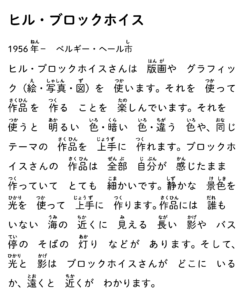 ヒル・ブロックホイス
1956年－　ベルギー・ヘール市
ヒル・ブロックホイスさんは　版画や　グラフィッ
ク（絵・写真・図）を　使います。それを　使って
作品を　作る　ことを　楽しんでいます。それを
使うと　明るい　色・暗い　色・違う　色や、同じ
テーマの　作品を　上手に　作れます。ブロックホ
イスさんの　作品は　全部　自分が　感じたまま
作っていて　とても　細かいです。静かな　景色を
光を　使って　上手に　作ります。作品には　誰も
いない　海の　近くに　見える　長い　影や　バス
停の　そばの　灯り　などが　あります。そして、
光と　影は　ブロックホイスさんが　どこに　いる
か、遠くと　近くが　わかります。